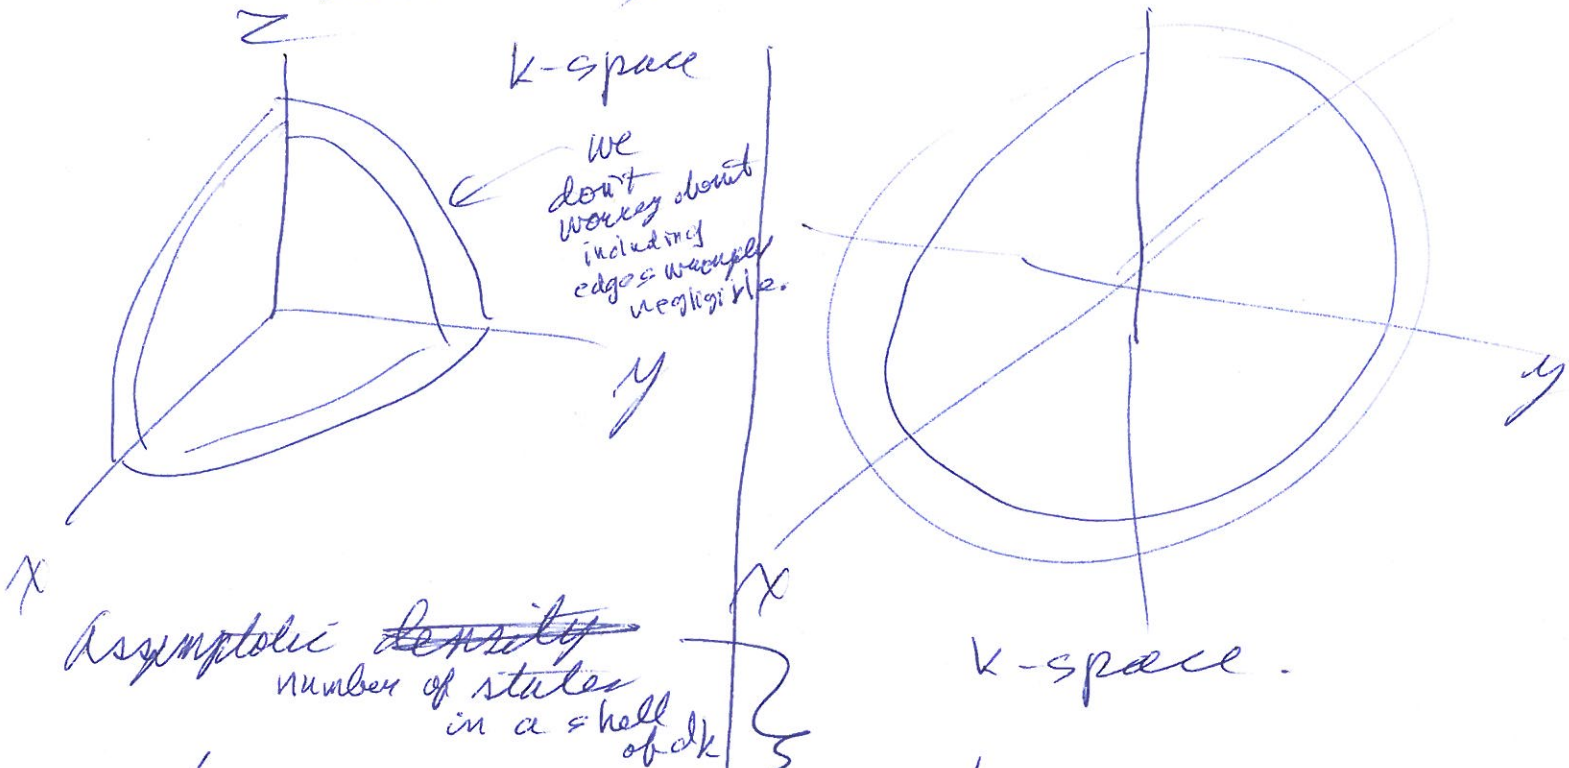 z
k-space
we
don't
worry about
including
edges
negligible.
y
x
y
x
Assymptotic density
number of states
in a shell
of dk
k-space.